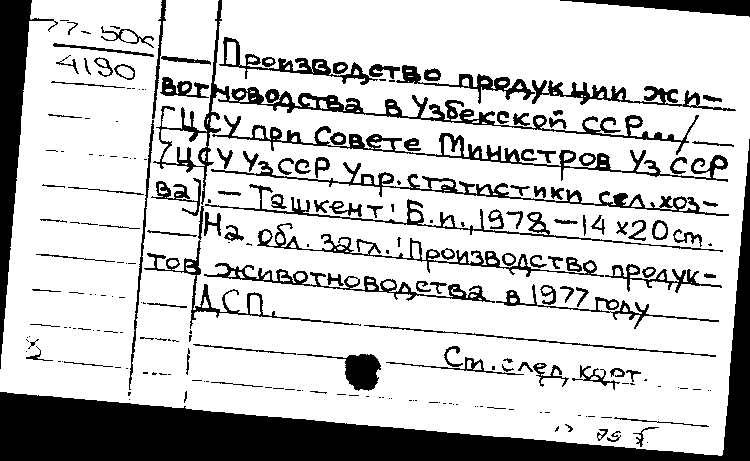 77-50к
4190
Производство продукции жи-
вотноводства в Узбекской ССР.../
[ЦСУ при Совете Министров УзССР
/ЦСУ УзССР, Упр. статистики сел. хоз-
ва]. — Ташкент: Б.и., 1978. — 14×20 см.
На обл. загл.: Производство продук-
тов животноводства в 1977 году
ДСП.
См. след. карт.